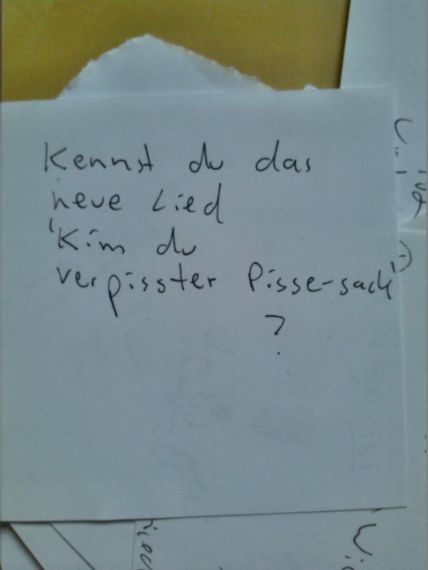 Kennst du das
neue Lied
'Kim du
verpisster Pisse-sack'
?